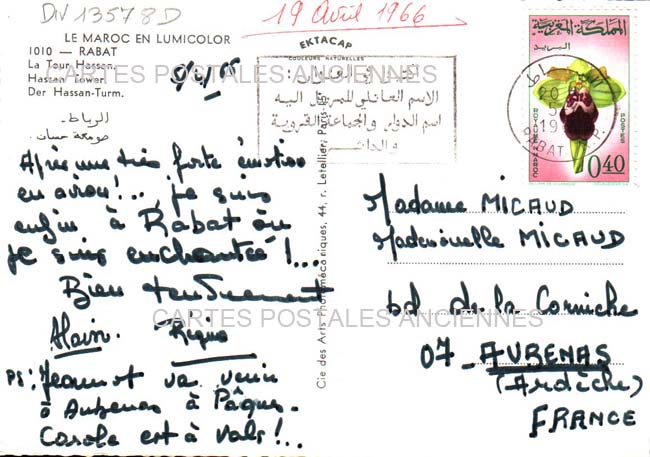 DIV 13578D
19 Avril 1966
LE MAROC EN LUMICOLOR
1010 — RABAT
La Tour Hassan.
Hassan Tower.
Der Hassan-Turm.
الرباط -
صومعة حسان.
EKTACAP
COULEURS NATURELLES
الاسم العائلي للمرسل اليه
اسم الدوار والجماعة القروية
CARTES POSTALES ANCIENNES
المملكة المغربية
البريد
0,40
RABAT
Après une très forte émotion
en avion !... je suis
enfin à Rabat où
je suis enchantée !...
Bien tendrement
Alain.
PS : Jeannot va venir
à Aubenas à Pâques.
Carole est à Vals !...
Cie des Arts Photomécaniques, 44, r. Letellier, Paris-15e
Madame MICAUD
Mademoiselle MICAUD
bd de la Corniche
07 - AUBENAS
(Ardèche)
FRANCE
CARTES POSTALES ANCIENNES